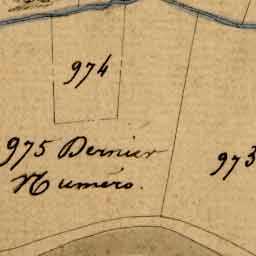 974
975 Dernier
Numéro.
973